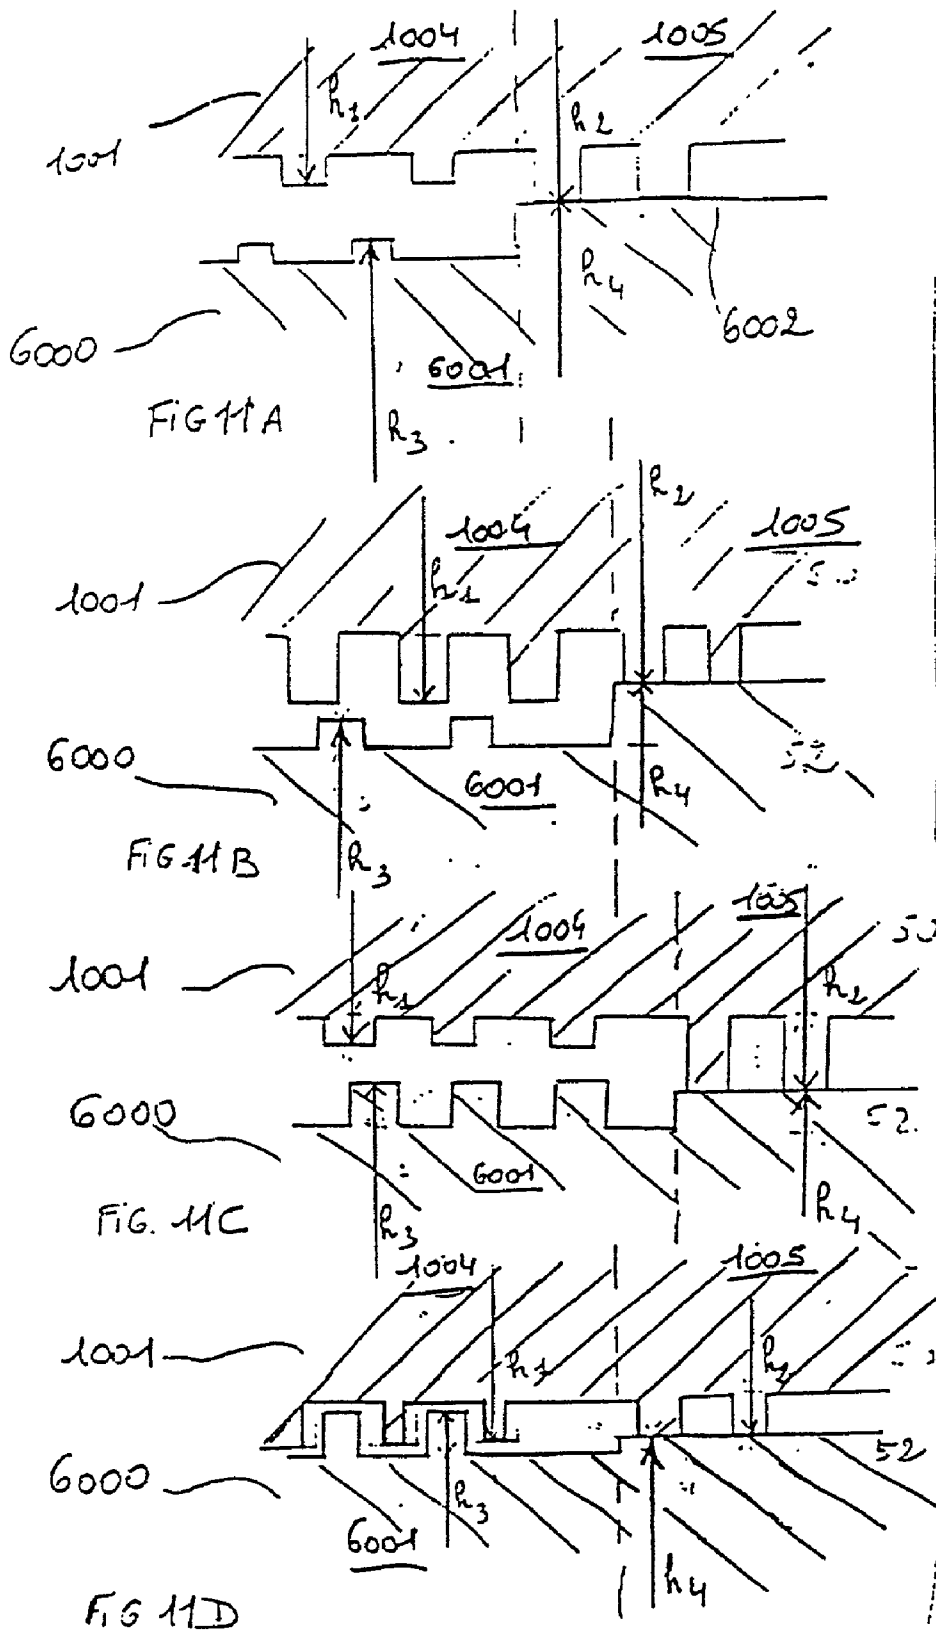 1004
1005
h1
h2
1001
h4
6000
6002
6001
FIG 11A
h3
h2
1004
1005
h1
1001
6000
6001
h4
52
FIG 11B
h3
1005
1004
1001
h1
h2
6000
52
6001
FIG. 11C
h3
h4
1004
1005
1001
h1
h2
52
6000
h3
6001
h4
FIG 11D